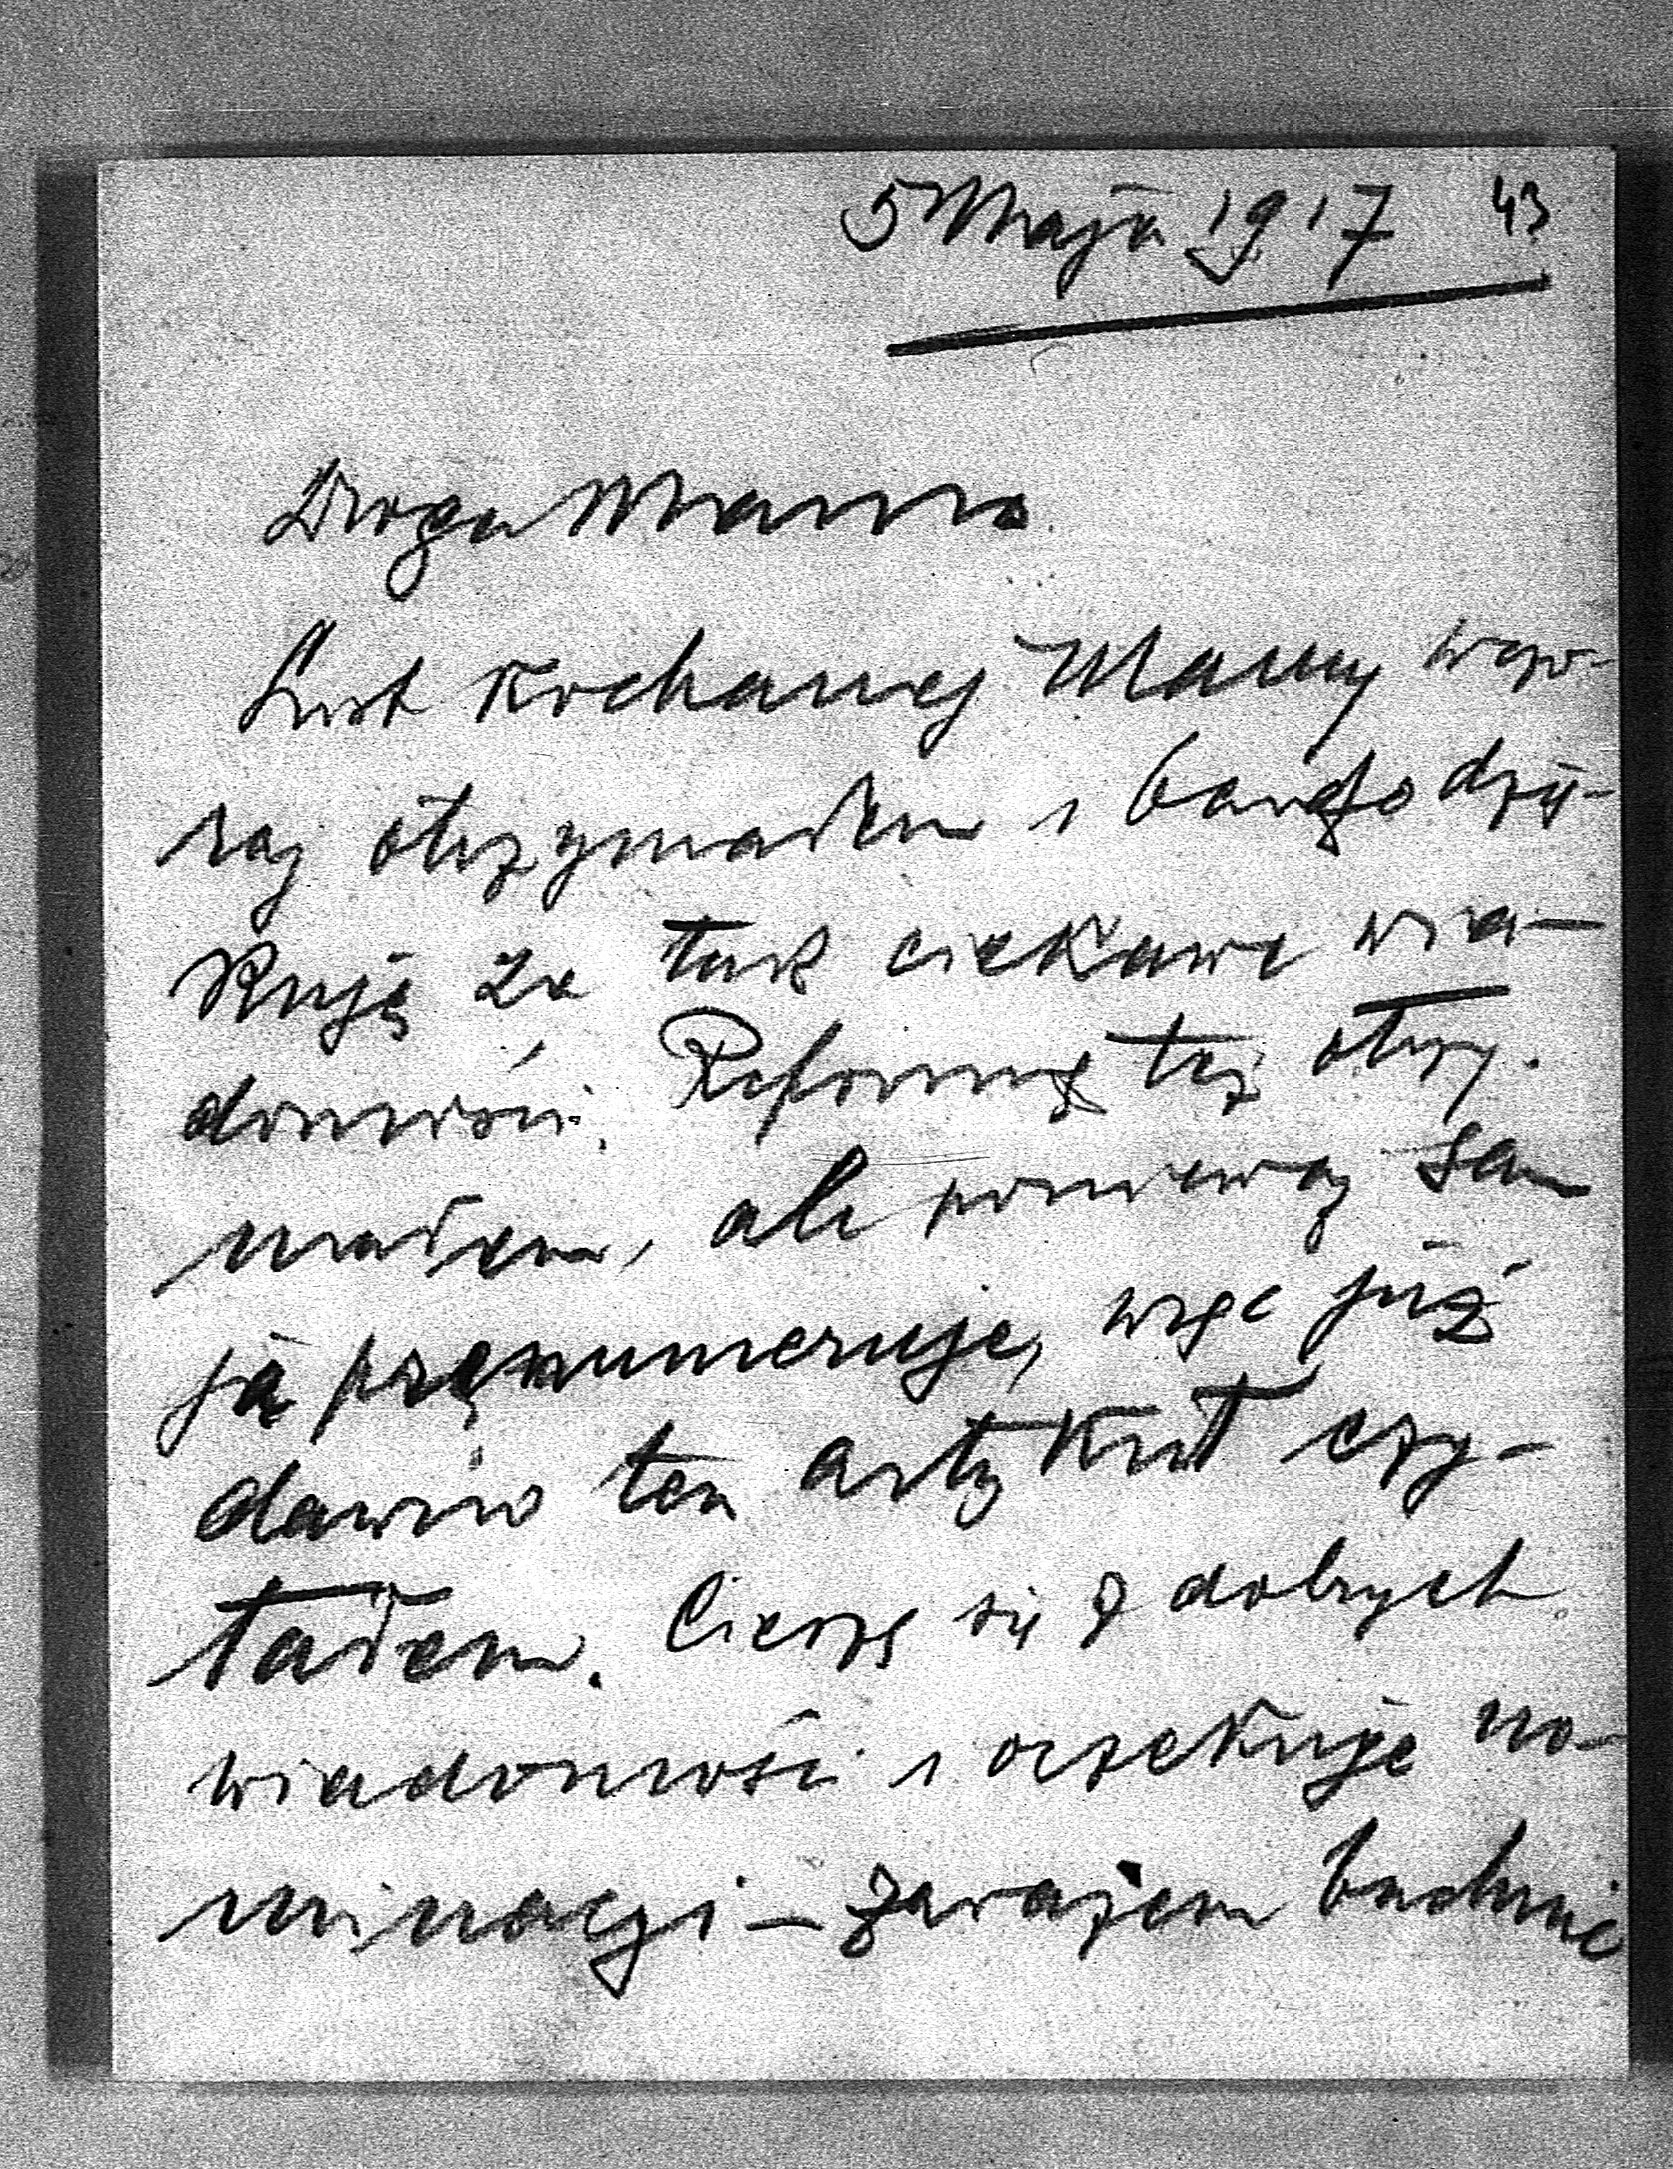 5 Maja 1917 43
Droga Mamo
List Kochanej Mamy wczo-
raj otrzymałem i bardzo dzię-
kuję za tak ciekawe wia-
domości. Reformę też otrzy-
małem, ale ponieważ sam
ją prenumeruję, więc już
dawno ten artykuł czy-
tałem. Cieszę się z dobrych
wiadomości i oczekuję no-
minacji – zarazem